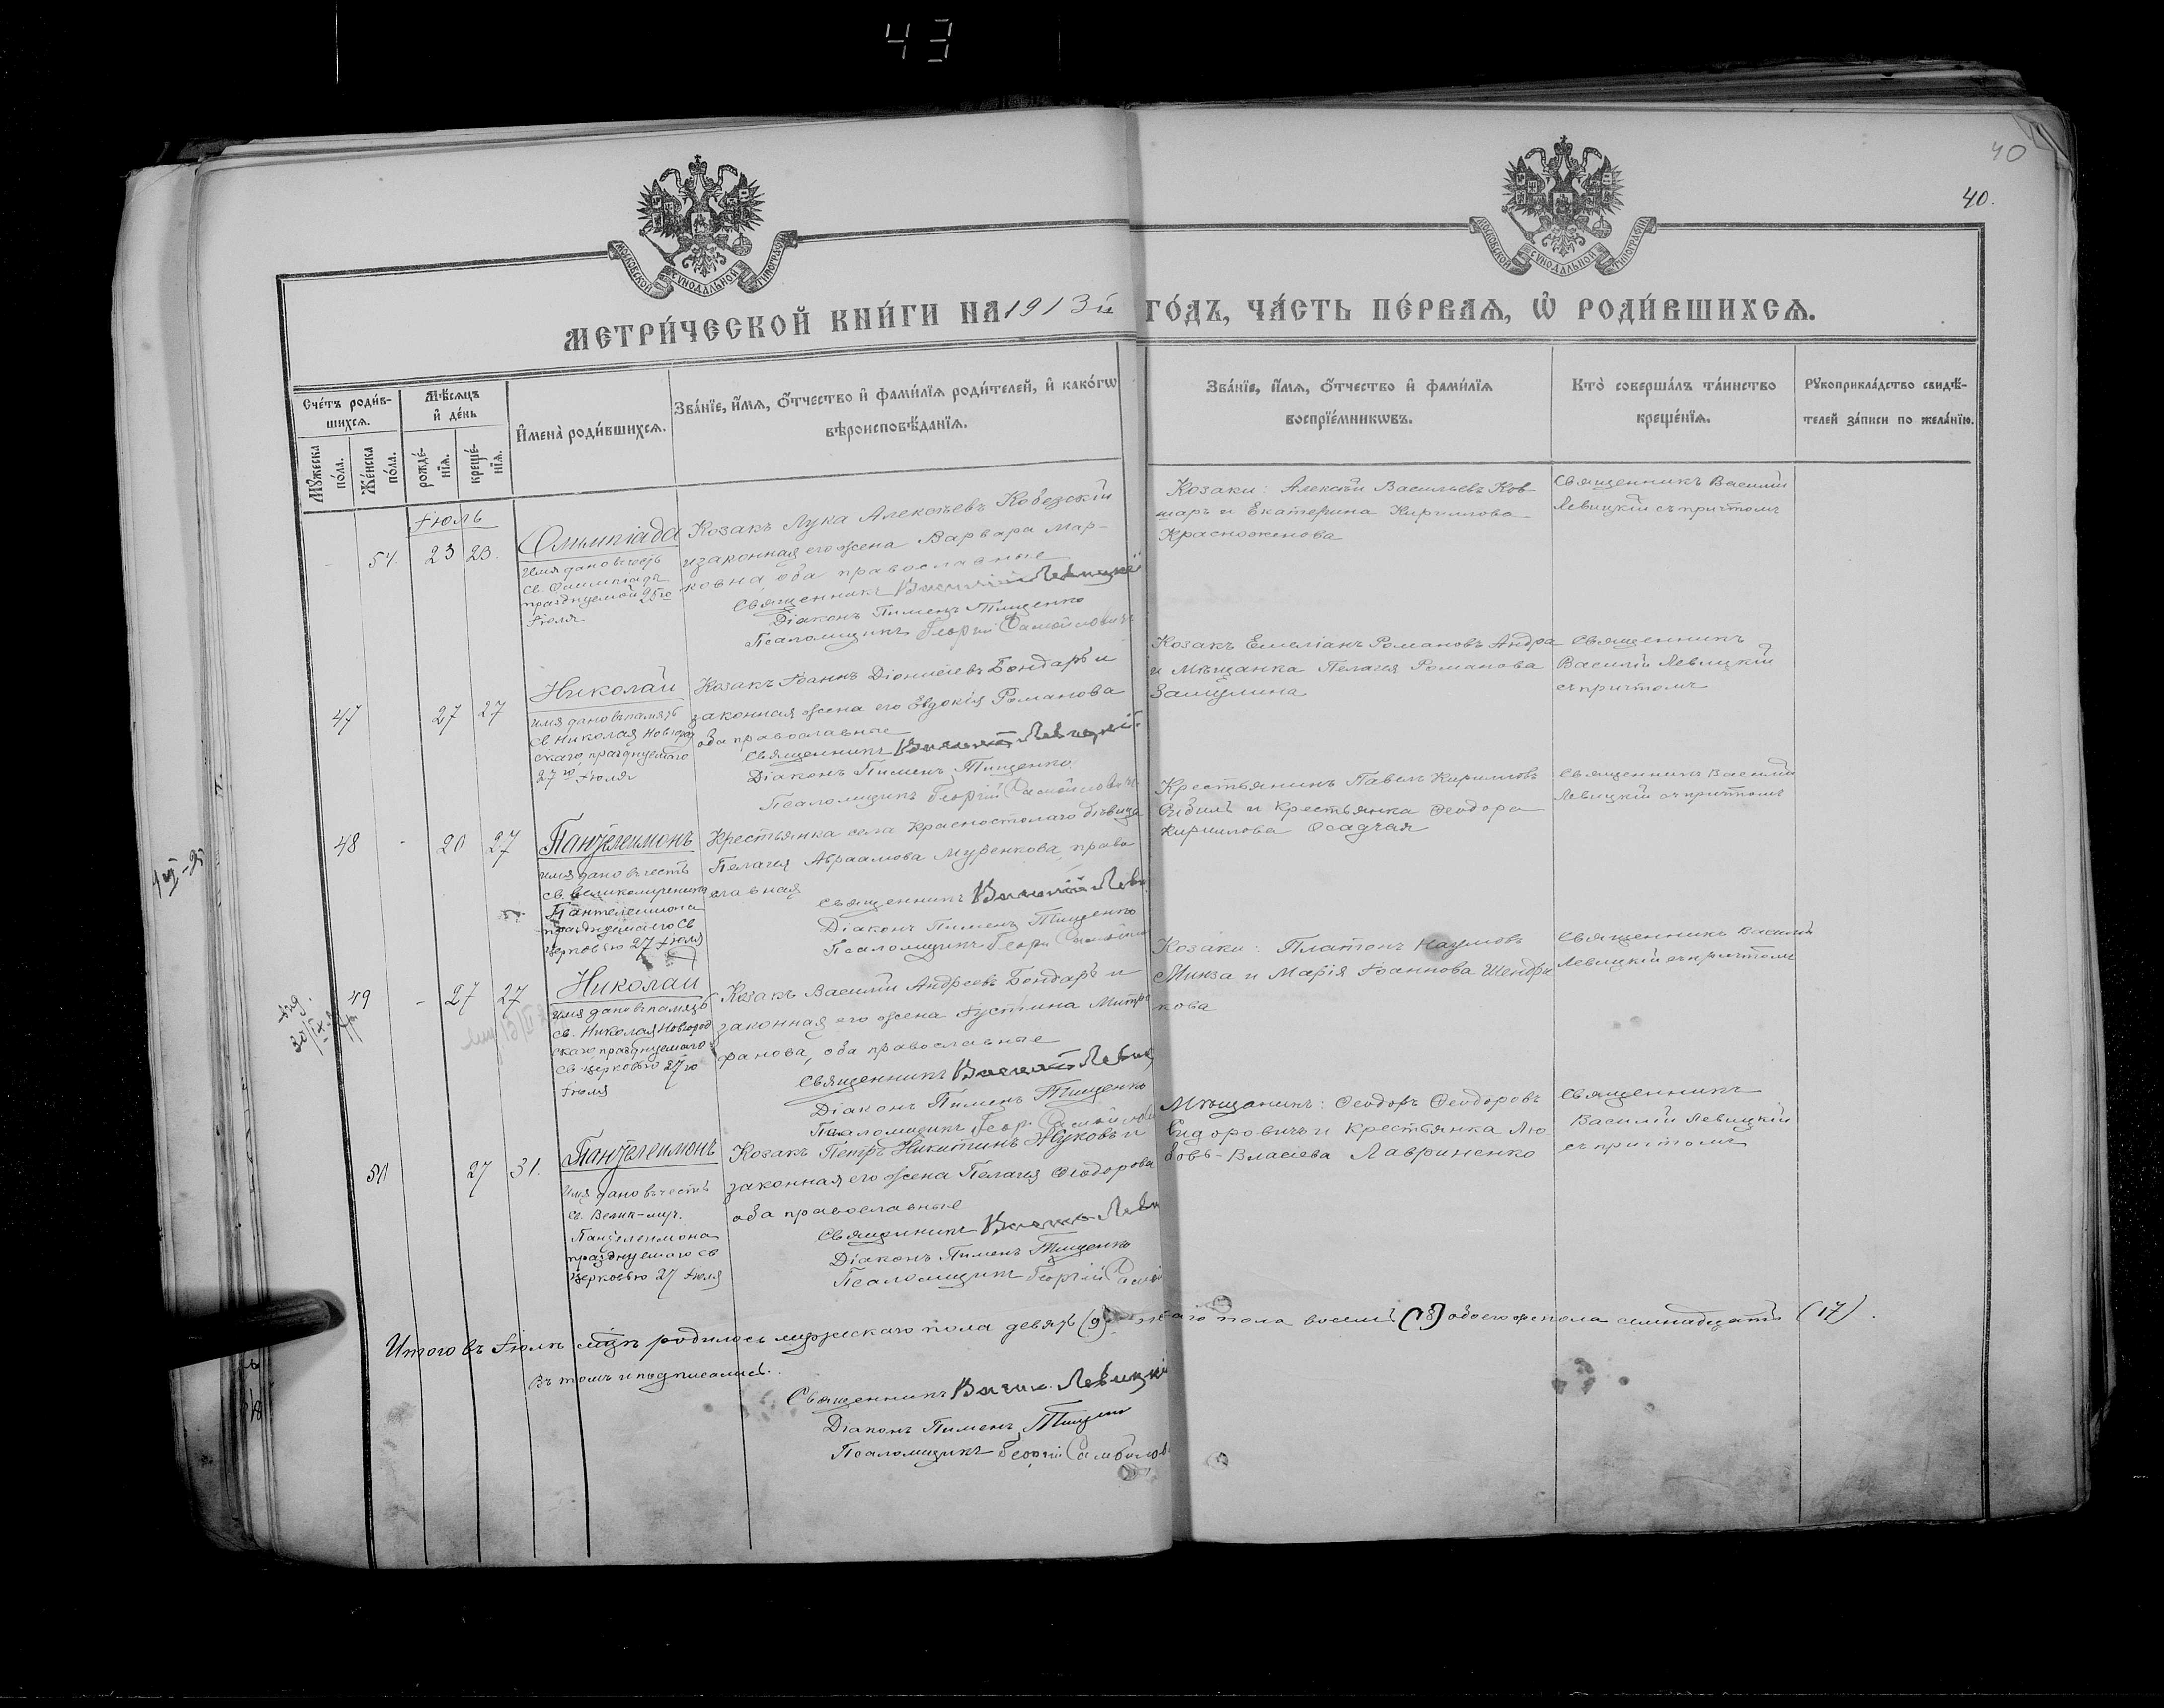 43
40
40.
МОСКОВСКОЙ СѴНОДАЛЬНОЙ ТИПОГРАФІИ
МОСКОВСКОЙ СѴНОДАЛЬНОЙ ТИПОГРАФІИ
МЕТРИ́ЧЕСКОЙ КНИ́ГИ НА 1913й ГО́ДЪ, ЧА́СТЬ ПЕ́РВАѦ, Ѡ РОДИ́ВШИХСѦ.
Сче́тъ роди́в-
шихсѧ.
Мꙋжеска по́ла.
Же́нска по́ла.
Мѣ́сѧцъ
и де́нь
рожде́-
нїѧ.
креще́-
нїѧ.
Имена̀ роди́вшихсѧ.
Зва́нїе, и́мѧ, ѻ́тчество и фами́лїѧ роди́телей, и како́гѡ
вѣроисповѣ́данїѧ.
Зва́нїе, и́мѧ, ѻ́тчество и фами́лїѧ
воспрїе́мникѡвъ.
Кто̀ соверша́лъ та́инство
креще́нїѧ.
Рꙋкоприкла́дство свидѣ́-
телей за́писи по жела́нїю.
Іюль
54. 23 23.
Олимпіада
Имя дано въ честь
св. Олимпіады
празднуемой 25го
Іюля
Козакъ Лука Алексѣевъ Кобезскій
и законная его жена Варвара Мар-
ковна оба православные
Священникъ Василій Левицкій
Діаконъ Пименъ Тищенко
Псаломщикъ Георгій Самойловичъ
Козаки: Алексѣй Васильевъ Ков-
шаръ и Екатерина Кириллова
Красноженова
Священникъ Василій
Левицкій съ причтомъ
47 27 27
Николай
имя дано въ память
св. Николая Новгород
скаго, празднуемаго
27го Іюля
Козакъ Іоаннъ Діонисіевъ Бондарь и
законная жена его Евдокія Романова
оба православные
Священникъ Василій Левицкій.
Діаконъ Пименъ Тищенко.
Псаломщикъ Георгій Самойлович
Козакъ Емеліанъ Романовъ Андра
и Мѣщанка Пелагія Романова
Священникъ
Василій Левицкій
съ причтомъ
48 - 20 27
Пантелеимонъ
имя дано въ честь
св. великомученика
Пантелеимона
празднуемаго Св
церковью 27 Іюля
Крестьянка села Красностолаго дѣвица
Пелагія Авраамова Муренкова, право
славная
Священникъ Василій Левиц
Діаконъ Пименъ Тищенко
Псаломщикъ Георг Самойло
Крестьянинъ Павелъ Кирилловъ
и крестьянка Ѳеодора
Кириллова Осадчая
Священникъ Василій
Левицкій съ причтомъ
49 - 27 27
Николай
имя дано въ память
св. Николая Новгород
скаго, празднуемаго
св церковью 27го
Іюля
Козакъ Василій Андреевъ Бондарь и
законная его жена Іустина Митро
фанова, оба православные
Священникъ Василій Левиц
Діаконъ Пименъ Тищенко
Псаломщикъ Георг Самойлов
Козаки: Платонъ Наумовъ
Минза и Марія Іоаннова Шендри
кова
Священникъ Василій
Левицкій съ причтомъ
50 27 31.
Пантелеимонъ
имя дано въ честь
св. Велик-муч.
Пантелеимона
празднуемаго св
церковью 27 Іюля
Козакъ Петръ Никитинъ Жуковъ и
законная его жена Пелагія Ѳеодорова
оба православные
Священникъ Василій Леви
Діаконъ Пименъ Тищенко
Псаломщикъ Георгій Самой
Мѣщанинъ: Ѳеодоръ Ѳеодоровъ
Сидоровичъ и крестьянка Лю
бовь Власіева Лавриненко
Священникъ
Василій Левицкій
съ причтомъ
Итого въ Іюлѣ мцѣ родилось мужескаго пола девять (9) го пола восемь (8) обоего же пола семнадцать (17).
Въ томъ и подписались.
Священникъ Васил. Левицкій
Діаконъ Пименъ Тищен
Псаломщикъ Георгій Самойлов